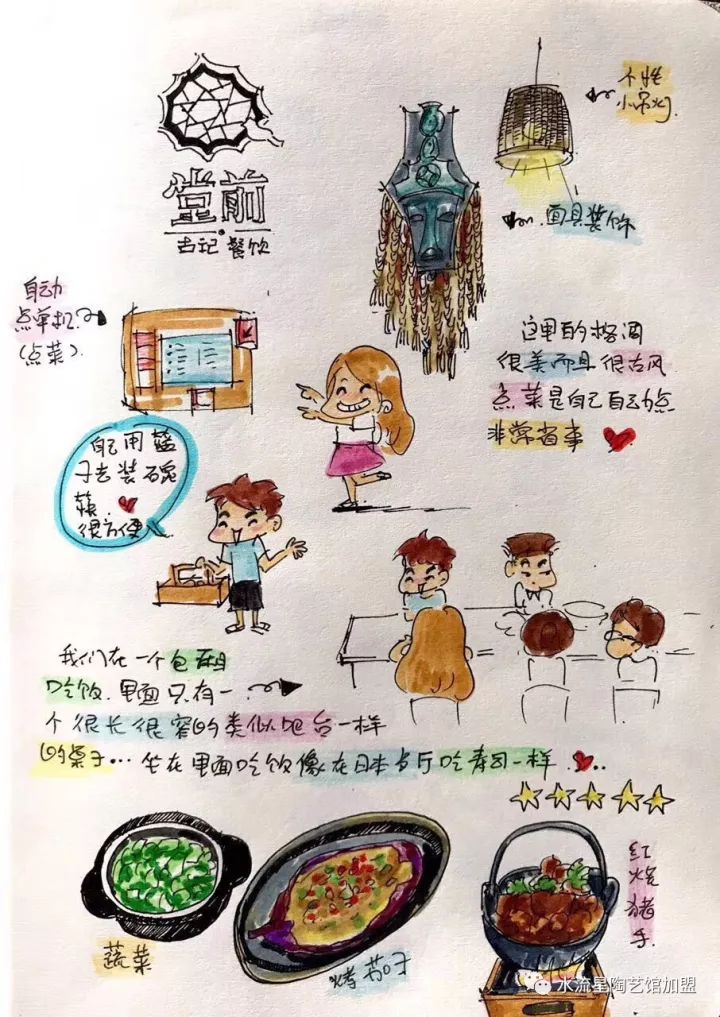 堂前
古记·餐饮
个性
小吊灯.
面具装饰
自动
点单机
(点菜).
这里的格调
很美而且很古风
点菜是自己自动点
非常省事
自己用篮
子去装碗
筷.
很方便
我们在一个包厢
吃饭.里面只有一
个很长很窄的类似吧台一样
的桌子...坐在里面吃饭像在日本餐厅吃寿司一样...
蔬菜
烤茄子
红烧猪手.
水流星陶艺馆加盟